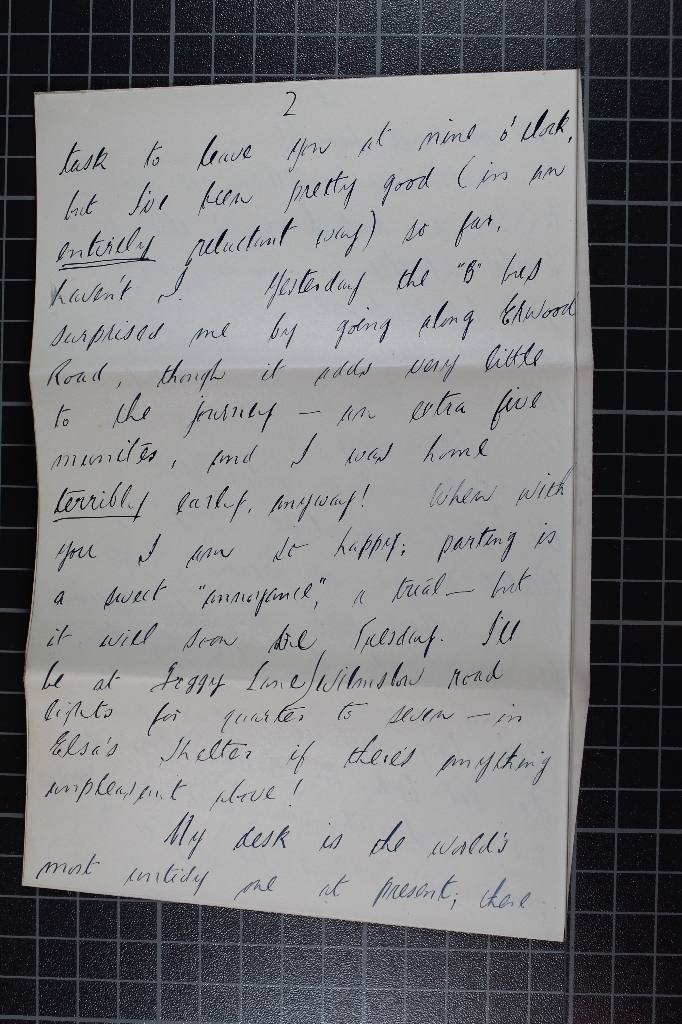 2
task to leave you at nine o'clock,
but I've been pretty good (in an
entirely reluctant way) so far,
haven't I. Yesterday the "B" bus
surprised me by going along Elwood
Road, though it adds very little
to the journey — an extra five
munites, and I was home
terribly early, anyway! When with
you I am so happy; parting is
a sweet "annoyance", a trial — but
it will soon be Tuesday. I'll
be at Foggy Lane/Wilmslow road
lights for quarter to seven — in
Elsa's Shelter if there's anything
unpleasant above!
My desk is the world's
most untidy one at present; there